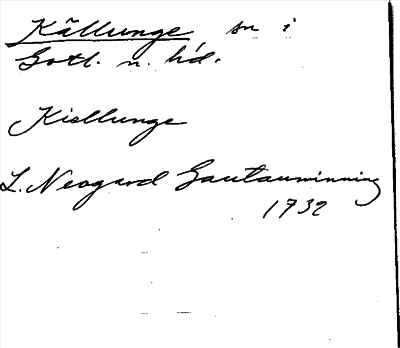 Källunge sn i
Gotl. n. hd.
Kisllunge
L. Neogard Gautauminning
1732